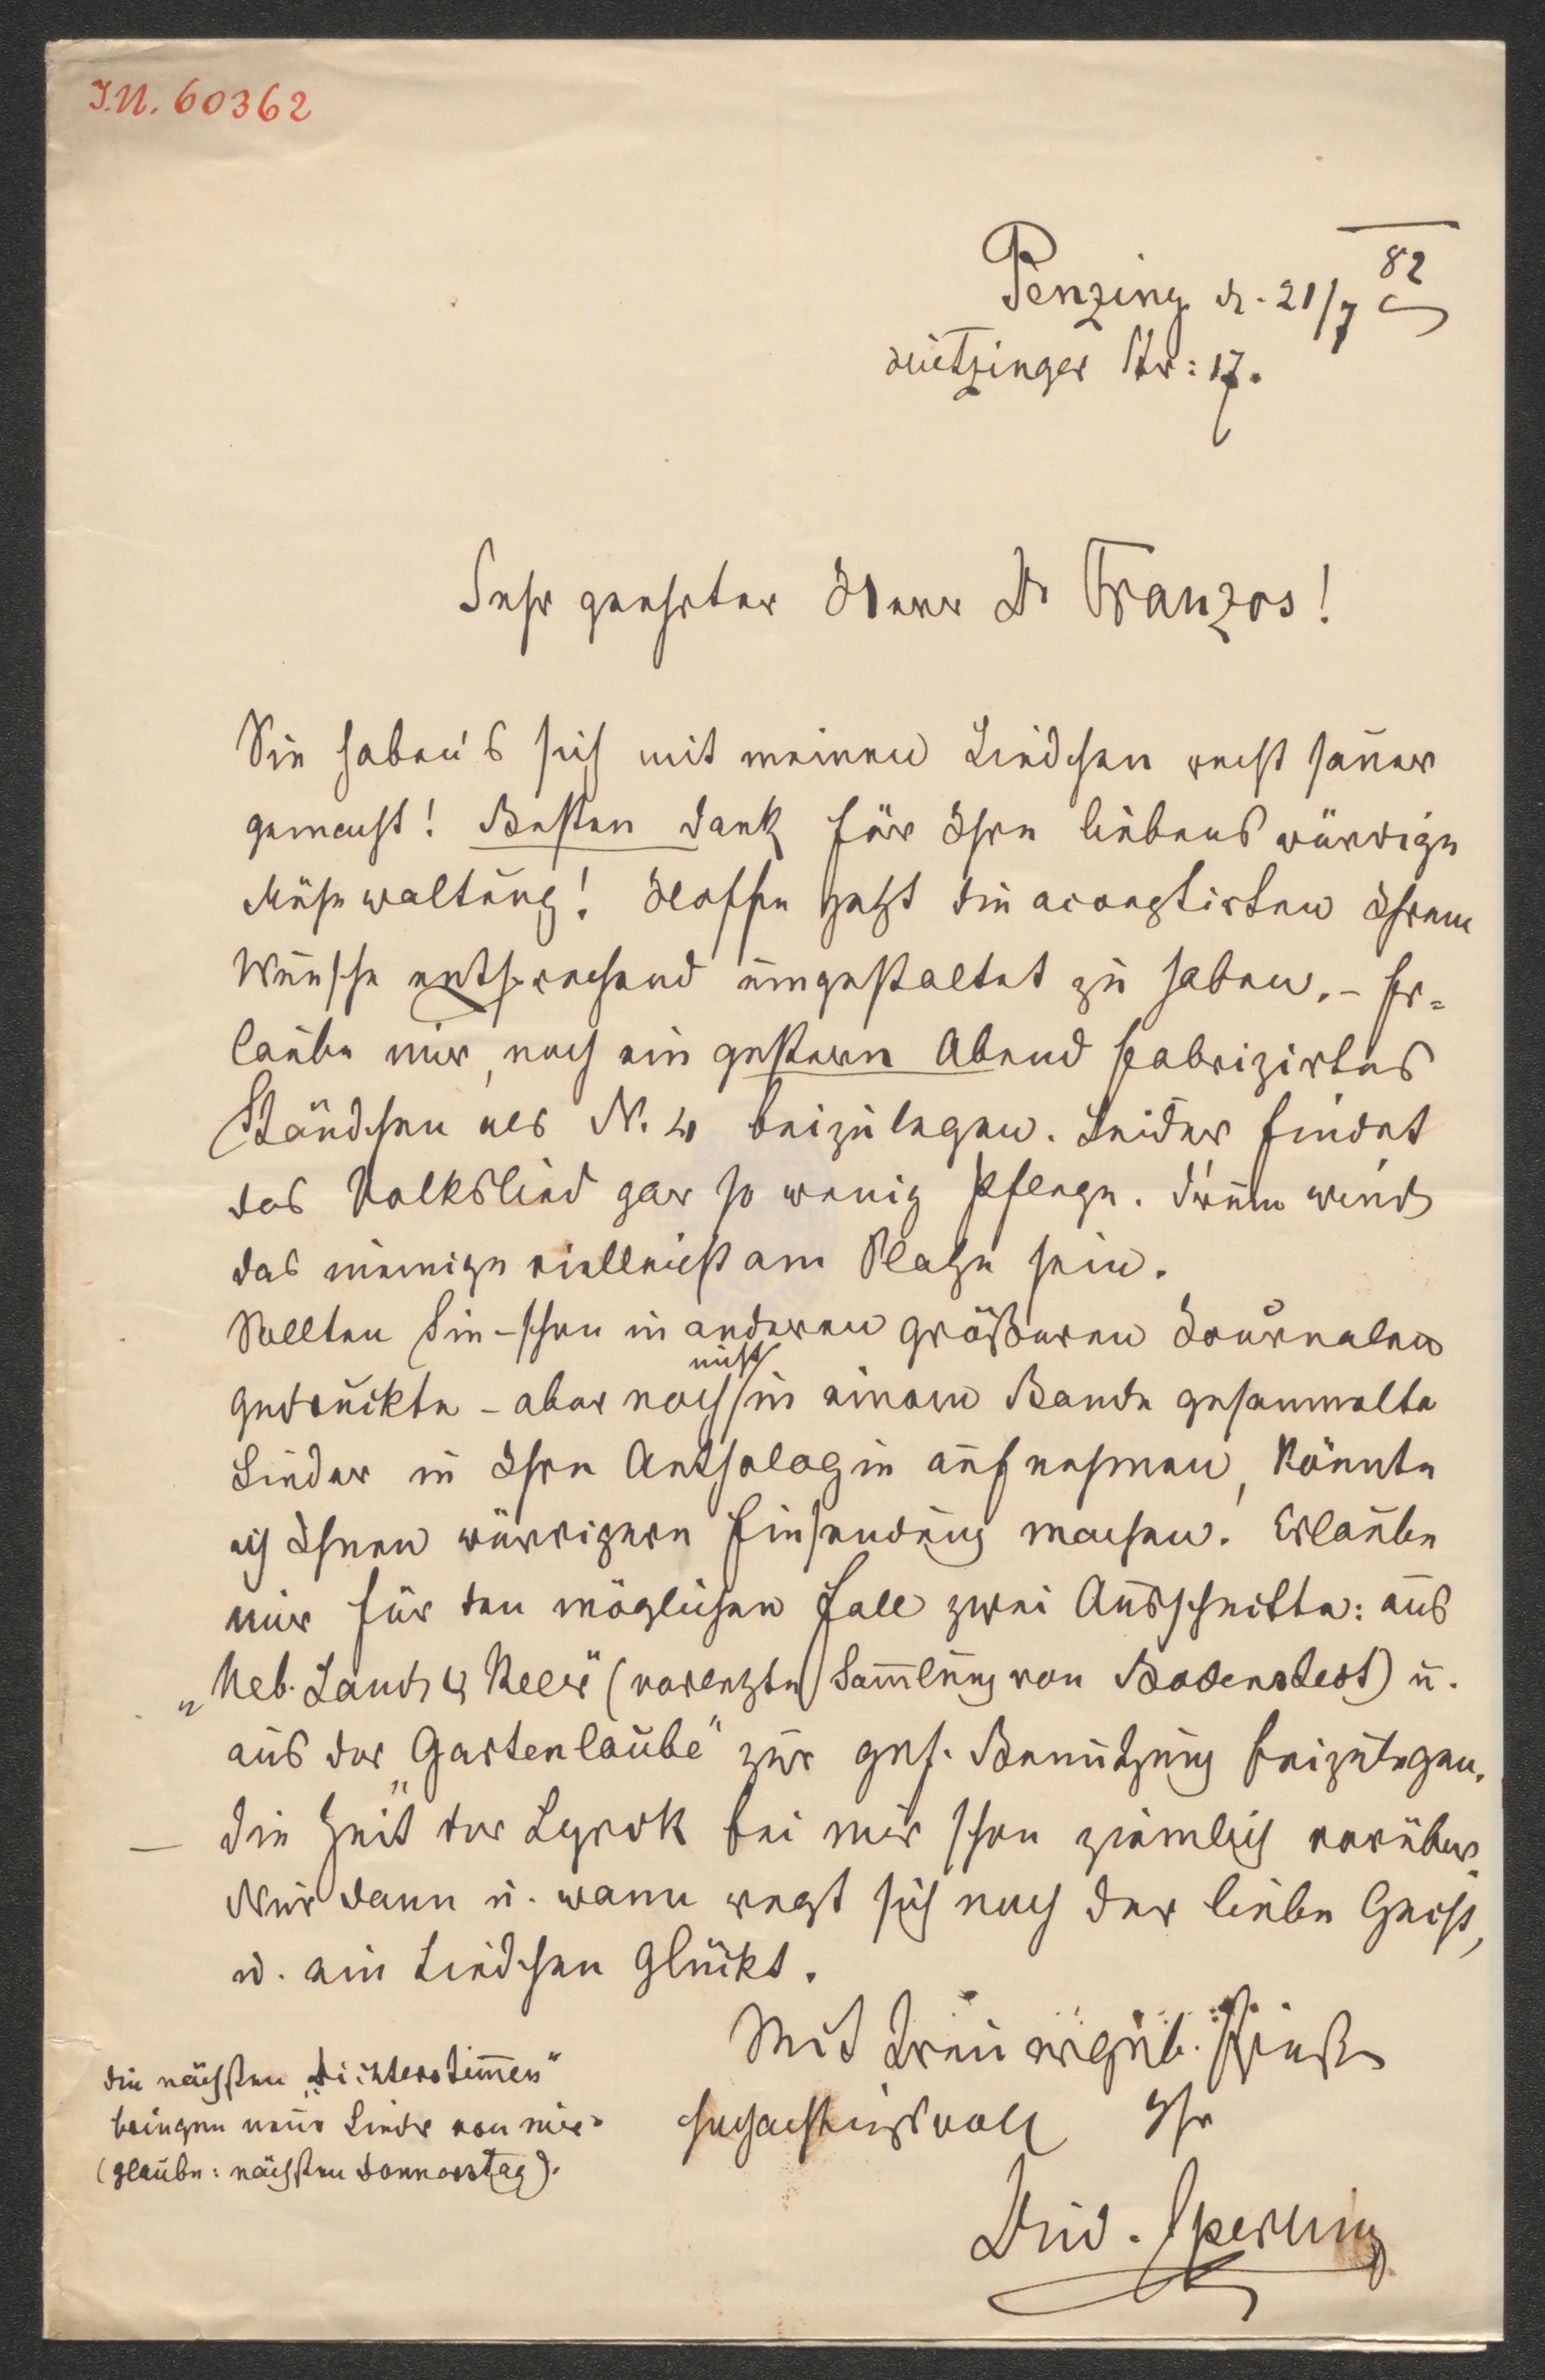 I.N. 60362
Penzing d. 21/7 82
Hietzinger Str: 17.
Sehr geehrter Herr Dr Franzos!
Sie haben's sich mit meinen Liedchen recht sauer
gemacht! Besten Dank für Ihre liebenswürdige
Mühewaltung! Hoffe jetzt die aceeptirten Ihrem
Wunsche entsprechend umgestaltet zu haben. – Er=
laube mir, noch ein gestern Abend fabrizirtes
Ständchen als N. 4 beizulegen. Leider findet
das Volkslied gar so wenig Pflege. Drum wird
das meinige vielleicht am Platze sein.
Sollten Sie – schon in anderen größeren Journalen
gedruckte – aber noch nicht in einem Bande gesammelte
Lieder in Ihre Anthologie aufnehmen, könnte
ich Ihnen würdigere Einsendung machen. Erlaube
mir für den möglichen Fall zwei Ausschnitte: aus
„Ueb. Land & Meer" (vorletzte Sammlung von Bodenstedt) u.
aus der „Gartenlaube" zur gef. Benutzung beizulegen.
– Die Zeit der Lyrik bei mir schon ziemlich vorüber.
Nur dann u. wann regt sich noch der liebe Geist,
u. ein Liedchen glückt.
Mit treu ergeb. Gruße
hochachtungsvoll Ihr
Sperling
Die nächsten „Dichterstimmen"
bringen neue Lieder von mir.
(glaube: nächsten Donnerstag).